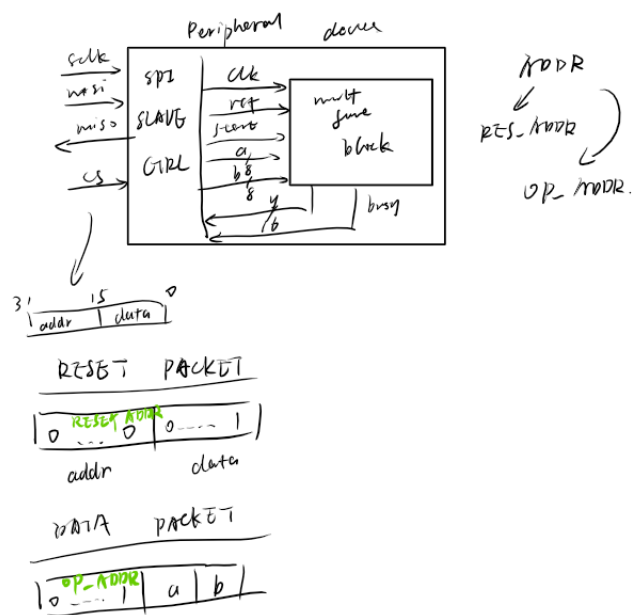 Peripheral device
sclk
mosi
miso
cs
SPI
SLAVE
CTRL
clk
rst
start
a 8
b 8
y
busy
mult
func
block
ADDR
RES_ADDR
OP_ADDR
31 15 0
addr data
RESET PACKET
RESET ADDR
0 ... 0 0 .... 1
addr data
DATA PACKET
OP_ADDR
0 .... 1 a b